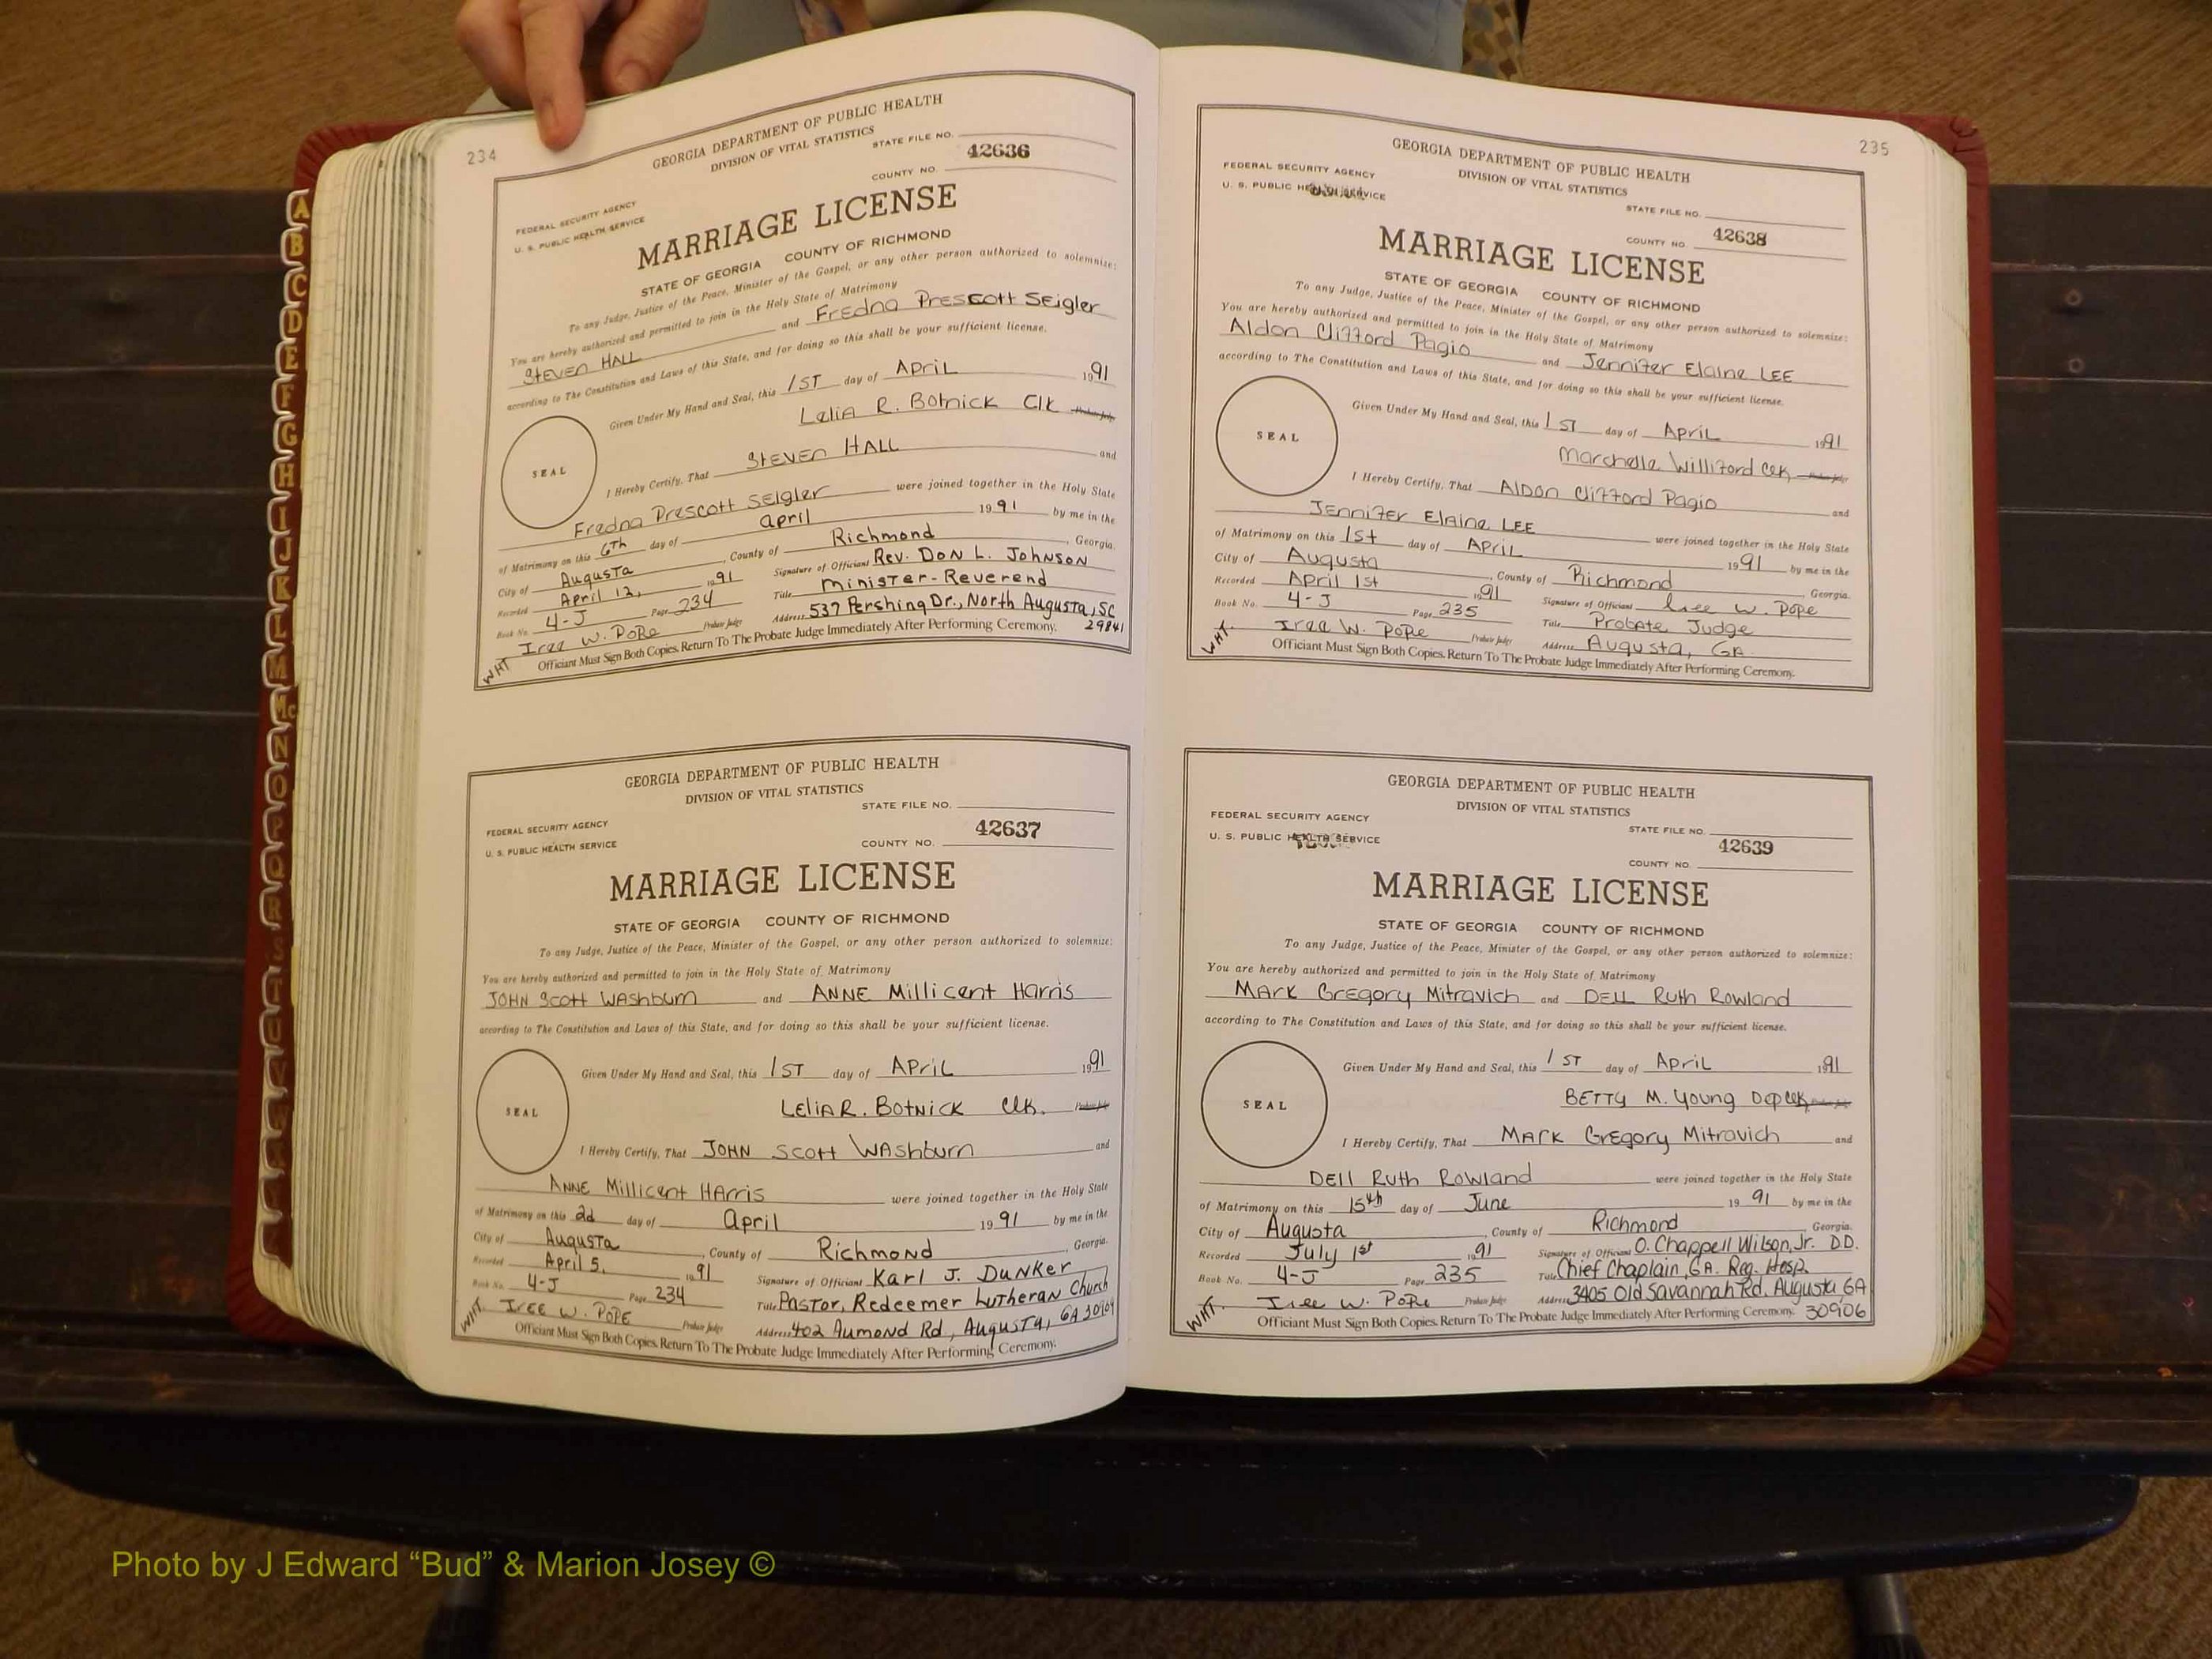 234
GEORGIA DEPARTMENT OF PUBLIC HEALTH
DIVISION OF VITAL STATISTICS
STATE FILE NO.
42636
COUNTY NO.
FEDERAL SECURITY AGENCY
U. S. PUBLIC HEALTH SERVICE
MARRIAGE LICENSE
STATE OF GEORGIA COUNTY OF RICHMOND
To any Judge, Justice of the Peace, Minister of the Gospel, or any other person authorized to solemnize:
You are hereby authorized and permitted to join in the Holy State of Matrimony
STEVEN HALL and Fredna Prescott Seigler
according to The Constitution and Laws of this State, and for doing so this shall be your sufficient license.
Given Under My Hand and Seal, this 1ST day of April 1991
Lelia R. Botnick Clk Probate Judge
SEAL
I Hereby Certify, That STEVEN HALL and
Fredna Prescott Seigler were joined together in the Holy State
of Matrimony on this 6Th day of april 1991 by me in the
City of Augusta, County of Richmond, Georgia.
Recorded April 12, 1991 Signature of Officiant Rev. Don L. Johnson
Book No. 4-J Page 234 Title Minister-Reverend
Iree W. Pope Probate Judge Address 537 Pershing Dr., North Augusta, SC
29841
WHT Officiant Must Sign Both Copies. Return To The Probate Judge Immediately After Performing Ceremony.
GEORGIA DEPARTMENT OF PUBLIC HEALTH
DIVISION OF VITAL STATISTICS
STATE FILE NO.
42637
FEDERAL SECURITY AGENCY
U. S. PUBLIC HEALTH SERVICE
COUNTY NO.
MARRIAGE LICENSE
STATE OF GEORGIA COUNTY OF RICHMOND
To any Judge, Justice of the Peace, Minister of the Gospel, or any other person authorized to solemnize:
You are hereby authorized and permitted to join in the Holy State of Matrimony
JOHN Scott Washburn and ANNE Millicent Harris
according to The Constitution and Laws of this State, and for doing so this shall be your sufficient license.
Given Under My Hand and Seal, this 1ST day of April 1991
Lelia R. Botnick Clk. Probate Judge
SEAL
I Hereby Certify, That JOHN Scott Washburn and
Anne Millicent Harris were joined together in the Holy State
of Matrimony on this 2d day of april 1991 by me in the
City of Augusta, County of Richmond, Georgia.
Recorded April 5, 1991 Signature of Officiant Karl J. Dunker
Book No. 4-J Page 234 Title Pastor, Redeemer Lutheran Church
Iree W. Pope Probate Judge Address 402 Aumond Rd, Augusta, GA 30909
WHT. Officiant Must Sign Both Copies. Return To The Probate Judge Immediately After Performing Ceremony.
235
GEORGIA DEPARTMENT OF PUBLIC HEALTH
DIVISION OF VITAL STATISTICS
FEDERAL SECURITY AGENCY
U. S. PUBLIC HEALTH SERVICE
STATE FILE NO.
COUNTY NO. 42638
MARRIAGE LICENSE
STATE OF GEORGIA COUNTY OF RICHMOND
To any Judge, Justice of the Peace, Minister of the Gospel, or any other person authorized to solemnize:
You are hereby authorized and permitted to join in the Holy State of Matrimony
Aldon Clifford Pagio and Jennifer Elaine LEE
according to The Constitution and Laws of this State, and for doing so this shall be your sufficient license.
Given Under My Hand and Seal, this 1ST day of April 1991
Marchelle Williford Clk Probate Judge
SEAL
I Hereby Certify, That Aldon Clifford Pagio and
Jennifer Elaine LEE were joined together in the Holy State
of Matrimony on this 1st day of April 1991 by me in the
City of Augusta, County of Richmond Georgia.
Recorded April 1st 1991 Signature of Officiant Iree W. Pope
Book No. 4-J Page 235 Title Probate Judge
Iree W. Pope Probate Judge Address Augusta, GA
WHT. Officiant Must Sign Both Copies. Return To The Probate Judge Immediately After Performing Ceremony.
GEORGIA DEPARTMENT OF PUBLIC HEALTH
DIVISION OF VITAL STATISTICS
FEDERAL SECURITY AGENCY
U. S. PUBLIC HEALTH SERVICE
STATE FILE NO.
42639
COUNTY NO.
MARRIAGE LICENSE
STATE OF GEORGIA COUNTY OF RICHMOND
To any Judge, Justice of the Peace, Minister of the Gospel, or any other person authorized to solemnize:
You are hereby authorized and permitted to join in the Holy State of Matrimony
Mark Gregory Mitravich and DELL Ruth Rowland
according to The Constitution and Laws of this State, and for doing so this shall be your sufficient license.
Given Under My Hand and Seal, this 1ST day of April 1991
BETTY M. Young Dep Clk Probate Judge
SEAL
I Hereby Certify, That Mark Gregory Mitravich and
DELL Ruth Rowland were joined together in the Holy State
of Matrimony on this 15th day of June 1991 by me in the
City of Augusta, County of Richmond Georgia.
Recorded July 1st 1991 Signature of Officiant O. Chappell Wilson, Jr. D.D.
Book No. 4-J Page 235 Title Chief Chaplain, GA. Reg. Hosp.
Iree W. Pope Probate Judge Address 3405 Old Savannah Rd, Augusta, GA
WHT. Officiant Must Sign Both Copies. Return To The Probate Judge Immediately After Performing Ceremony. 30906
A
B
C
D
E
F
G
H
I
J
K
L
M
Mc
N
O
P
Q
R
S
T
U
Photo by J Edward “Bud” & Marion Josey ©